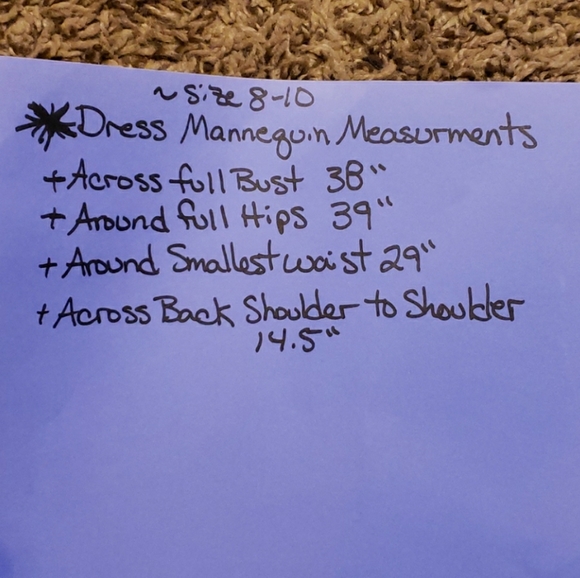 ~ Size 8-10
Dress Mannequin Measurments
+ Across full Bust 38"
+ Around full Hips 39"
+ Around Smallest waist 29"
+ Across Back Shoulder to Shoulder
14.5"